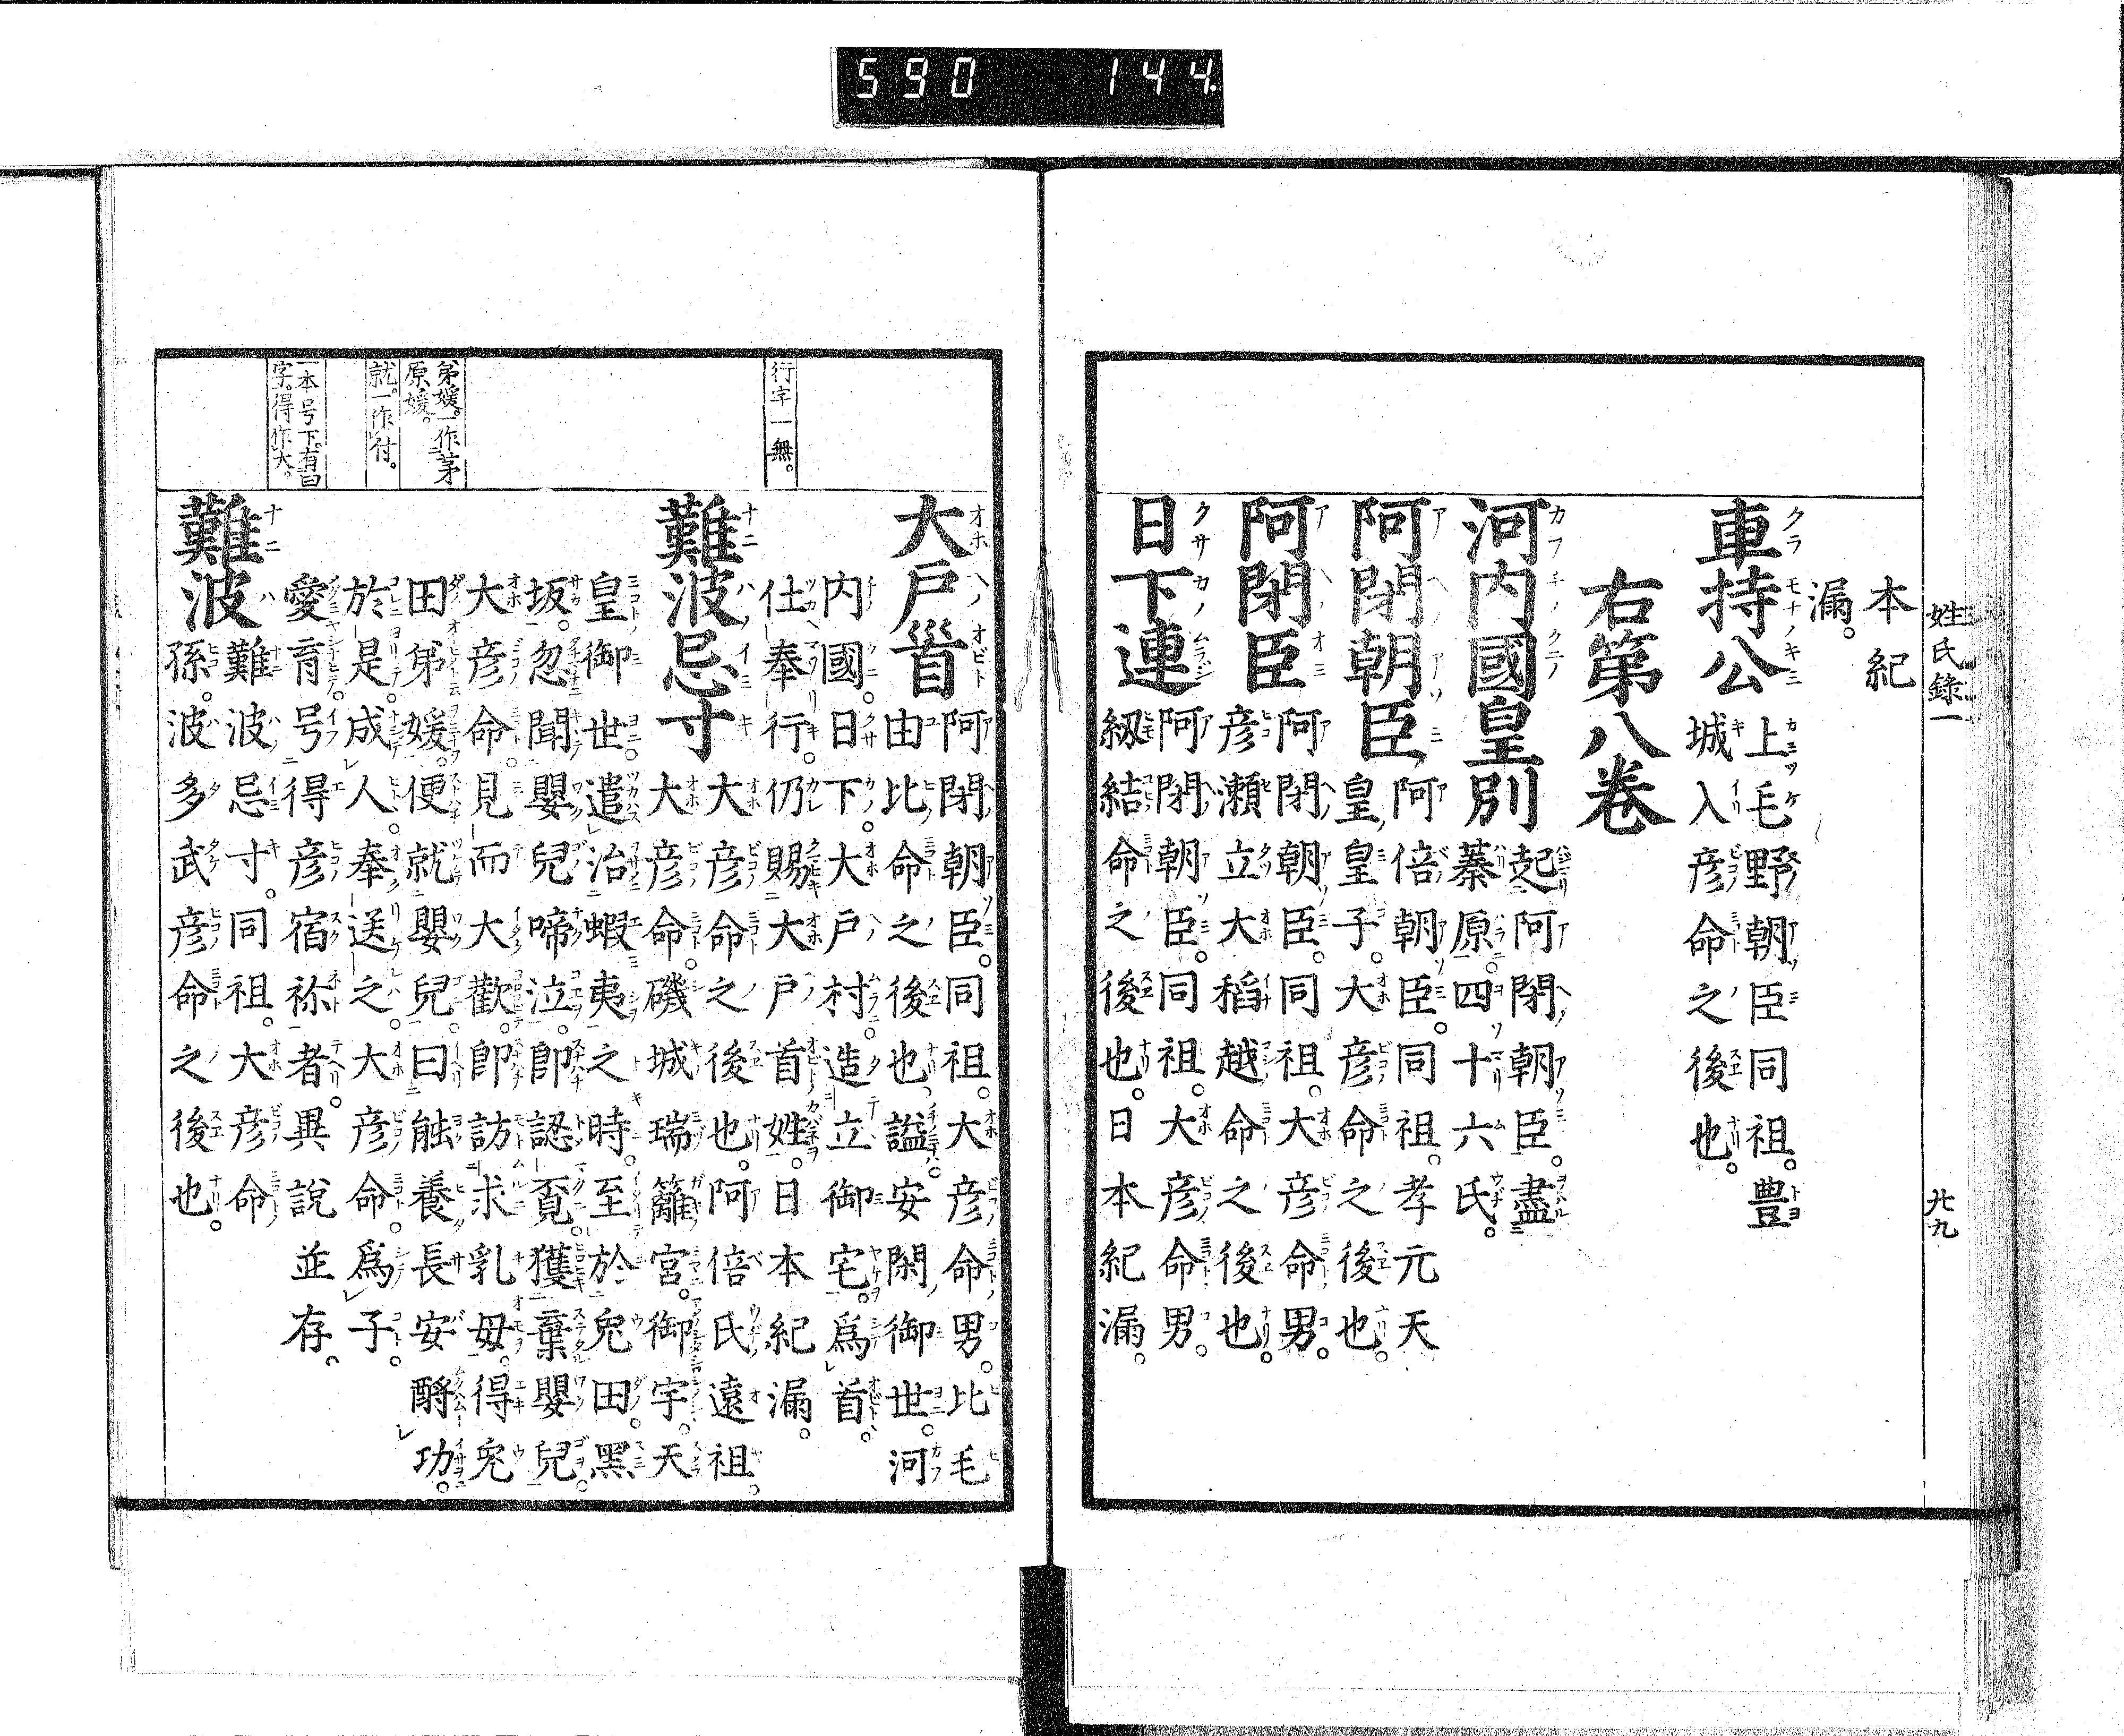 590 144
姓氏錄一
廿九
本紀
漏。
車持公 上毛野朝臣同祖。豊
城入彦命之後也。
右第八卷
河内國皇別 起阿閇朝臣。盡
蓁原。四十六氏。
阿閇朝臣 阿倍朝臣。同祖。孝元天
皇皇子。大彦命之後也。
阿閇臣 阿閇朝臣。同祖。大彦命男。
彦瀬立大稻越命之後也。
日下連 阿閇朝臣。同祖。大彦命男。
紐結命之後也。日本紀漏。
大戸首 阿閇朝臣。同祖。大彦命男。比毛
由比命之後也。謚安閑御世。河
内國。日下。大戸村。造立御宅。爲首。
仕奉行。仍賜大戸首姓。日本紀漏。
難波忌寸 大彦命之後也。阿倍氏遠祖。
大彦命。磯城瑞籬宮。御宇。天
皇御世。遣治蝦夷之時。至於兎田。黑
坂。忽聞嬰兒啼泣。卽認覓。獲棄嬰兒。
大彦命。見而大歡。卽訪求乳母。得兎
田弟媛。便就嬰兒。曰。能養長安酬功。
於是。成人。奉送之。大彦命。爲子。
愛育。号得彦宿祢者。異說並存。
難波 難波忌寸。同祖。大彦命
孫。波多武彦命之後也。
行字一無。
弟媛。一作茅
原媛。
就。一作付。
一本号下。有曰
字。得作大。